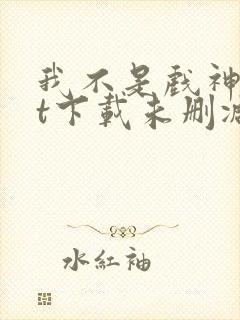 我不是戲神
t下載未刪
水紅袖